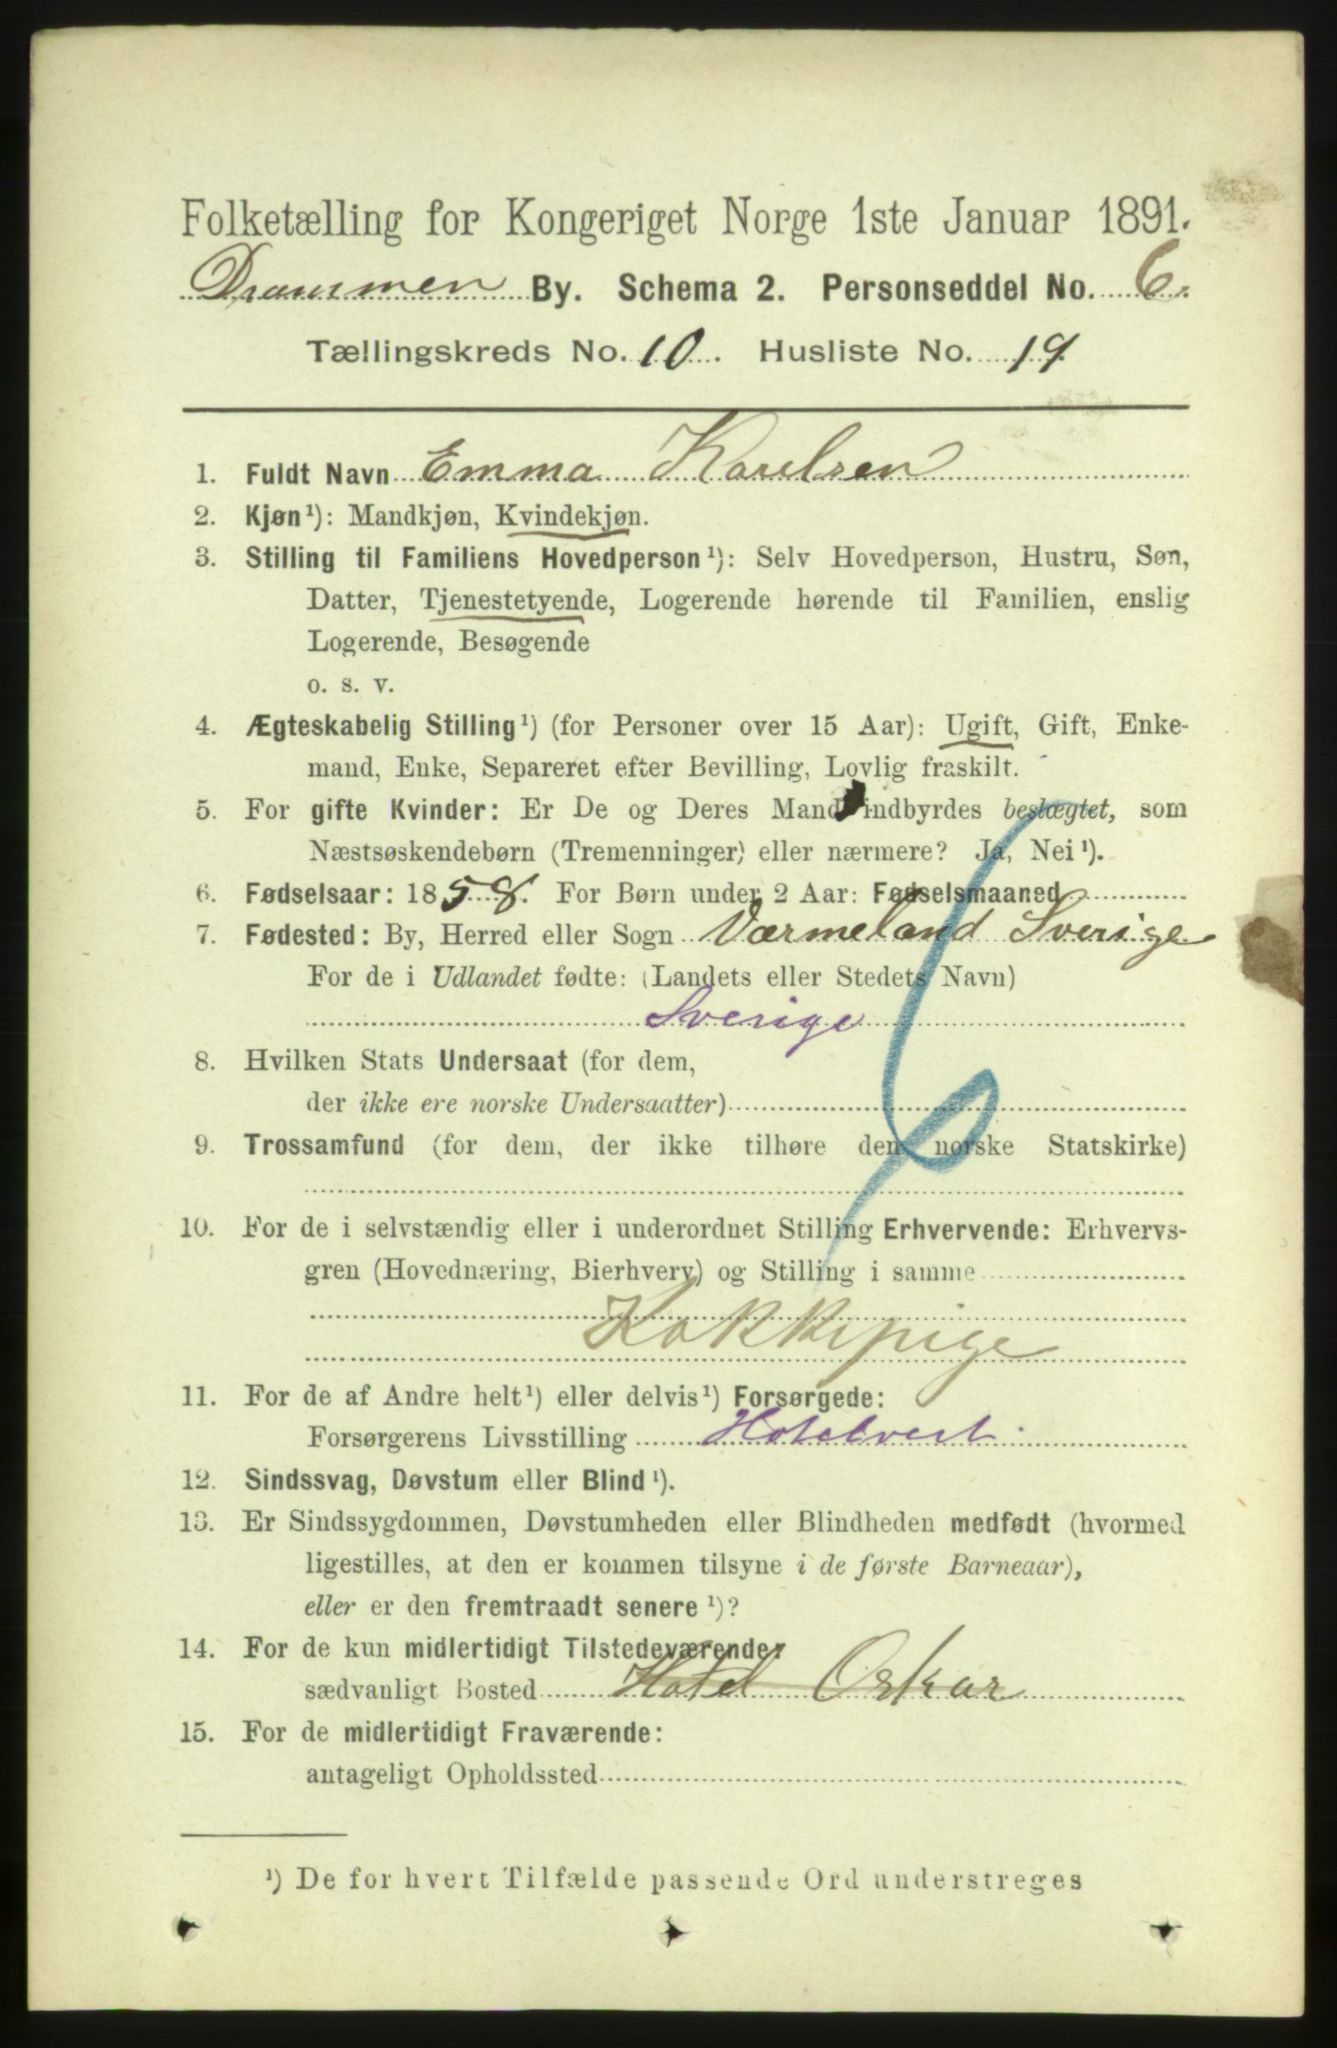 Folketælling for Kongeriget Norge 1ste Januar 1891.
Drammen By. Schema 2. Personseddel No. 6.
Tællingskreds No. 10. Husliste No. 19
1. Fuldt Navn Emma Karelsen
2. Kjøn¹): Mandkjøn, Kvindekjøn.
3. Stilling til Familiens Hovedperson¹): Selv Hovedperson, Hustru, Søn,
Datter, Tjenestetyende, Logerende hørende til Familien, enslig
Logerende, Besøgende
o. s. v.
4. Ægteskabelig Stilling¹) (for Personer over 15 Aar): Ugift, Gift, Enke-
mand, Enke, Separeret efter Bevilling, Lovlig fraskilt.
5. For gifte Kvinder: Er De og Deres Mand indbyrdes beslægtet, som
Næstsøskendebørn (Tremenninger) eller nærmere? Ja, Nei¹).
6. Fødselsaar: 1858. For Børn under 2 Aar: Fødselsmaaned
7. Fødested: By, Herred eller Sogn Værmeland Sverige
For de i Udlandet fødte: (Landets eller Stedets Navn)
Sverige
8. Hvilken Stats Undersaat (for dem,
der ikke ere norske Undersaatter)
9. Trossamfund (for dem, der ikke tilhøre den norske Statskirke)
10. For de i selvstændig eller i underordnet Stilling Erhvervende: Erhvervs-
gren (Hovednæring, Bierhverv) og Stilling i samme
Kokkepige
11. For de af Andre helt¹) eller delvis¹) Forsørgede:
Forsørgerens Livsstilling Hotelvert
12. Sindssvag, Døvstum eller Blind¹).
13. Er Sindssygdommen, Døvstumheden eller Blindheden medfødt (hvormed
ligestilles, at den er kommen tilsyne i de første Barneaar),
eller er den fremtraadt senere¹)?
14. For de kun midlertidigt Tilstedeværende:
sædvanligt Bosted Hotel Oskar
15. For de midlertidigt Fraværende:
antageligt Opholdssted
¹) De for hvert Tilfælde passende Ord understreges